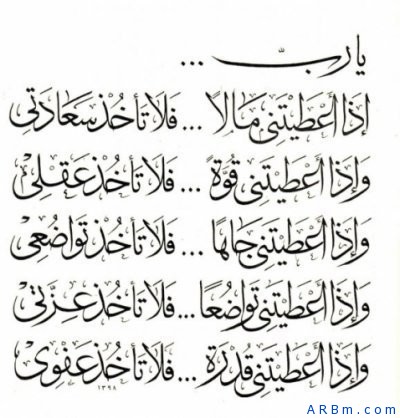 يا ربّ ...
إِذَا أَعْطَيْتَنِي مَالاً ... فَلَا تَأخُذ سَعَادَتِي
وَإِذَا أَعْطَيْتَنِي قُوَّةً ... فَلَا تَأخُذ عَقْلِي
وَإِذَا أَعْطَيْتَنِي جَاهًا ... فَلَا تَأخُذ تَوَاضُعِي
وَإِذَا أَعْطَيْتَنِي تَوَاضُعًا ... فَلَا تَأخُذ عِزَّتِي
وَإِذَا أَعْطَيْتَنِي قُدْرَةً ... فَلَا تَأخُذ عَفْوِي
١٣٩٨
ARBm.com